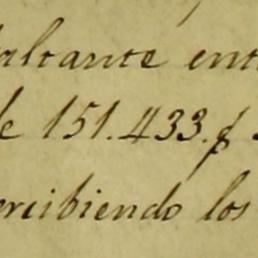 ultante ent
e 151.433.$
ercibiendo los